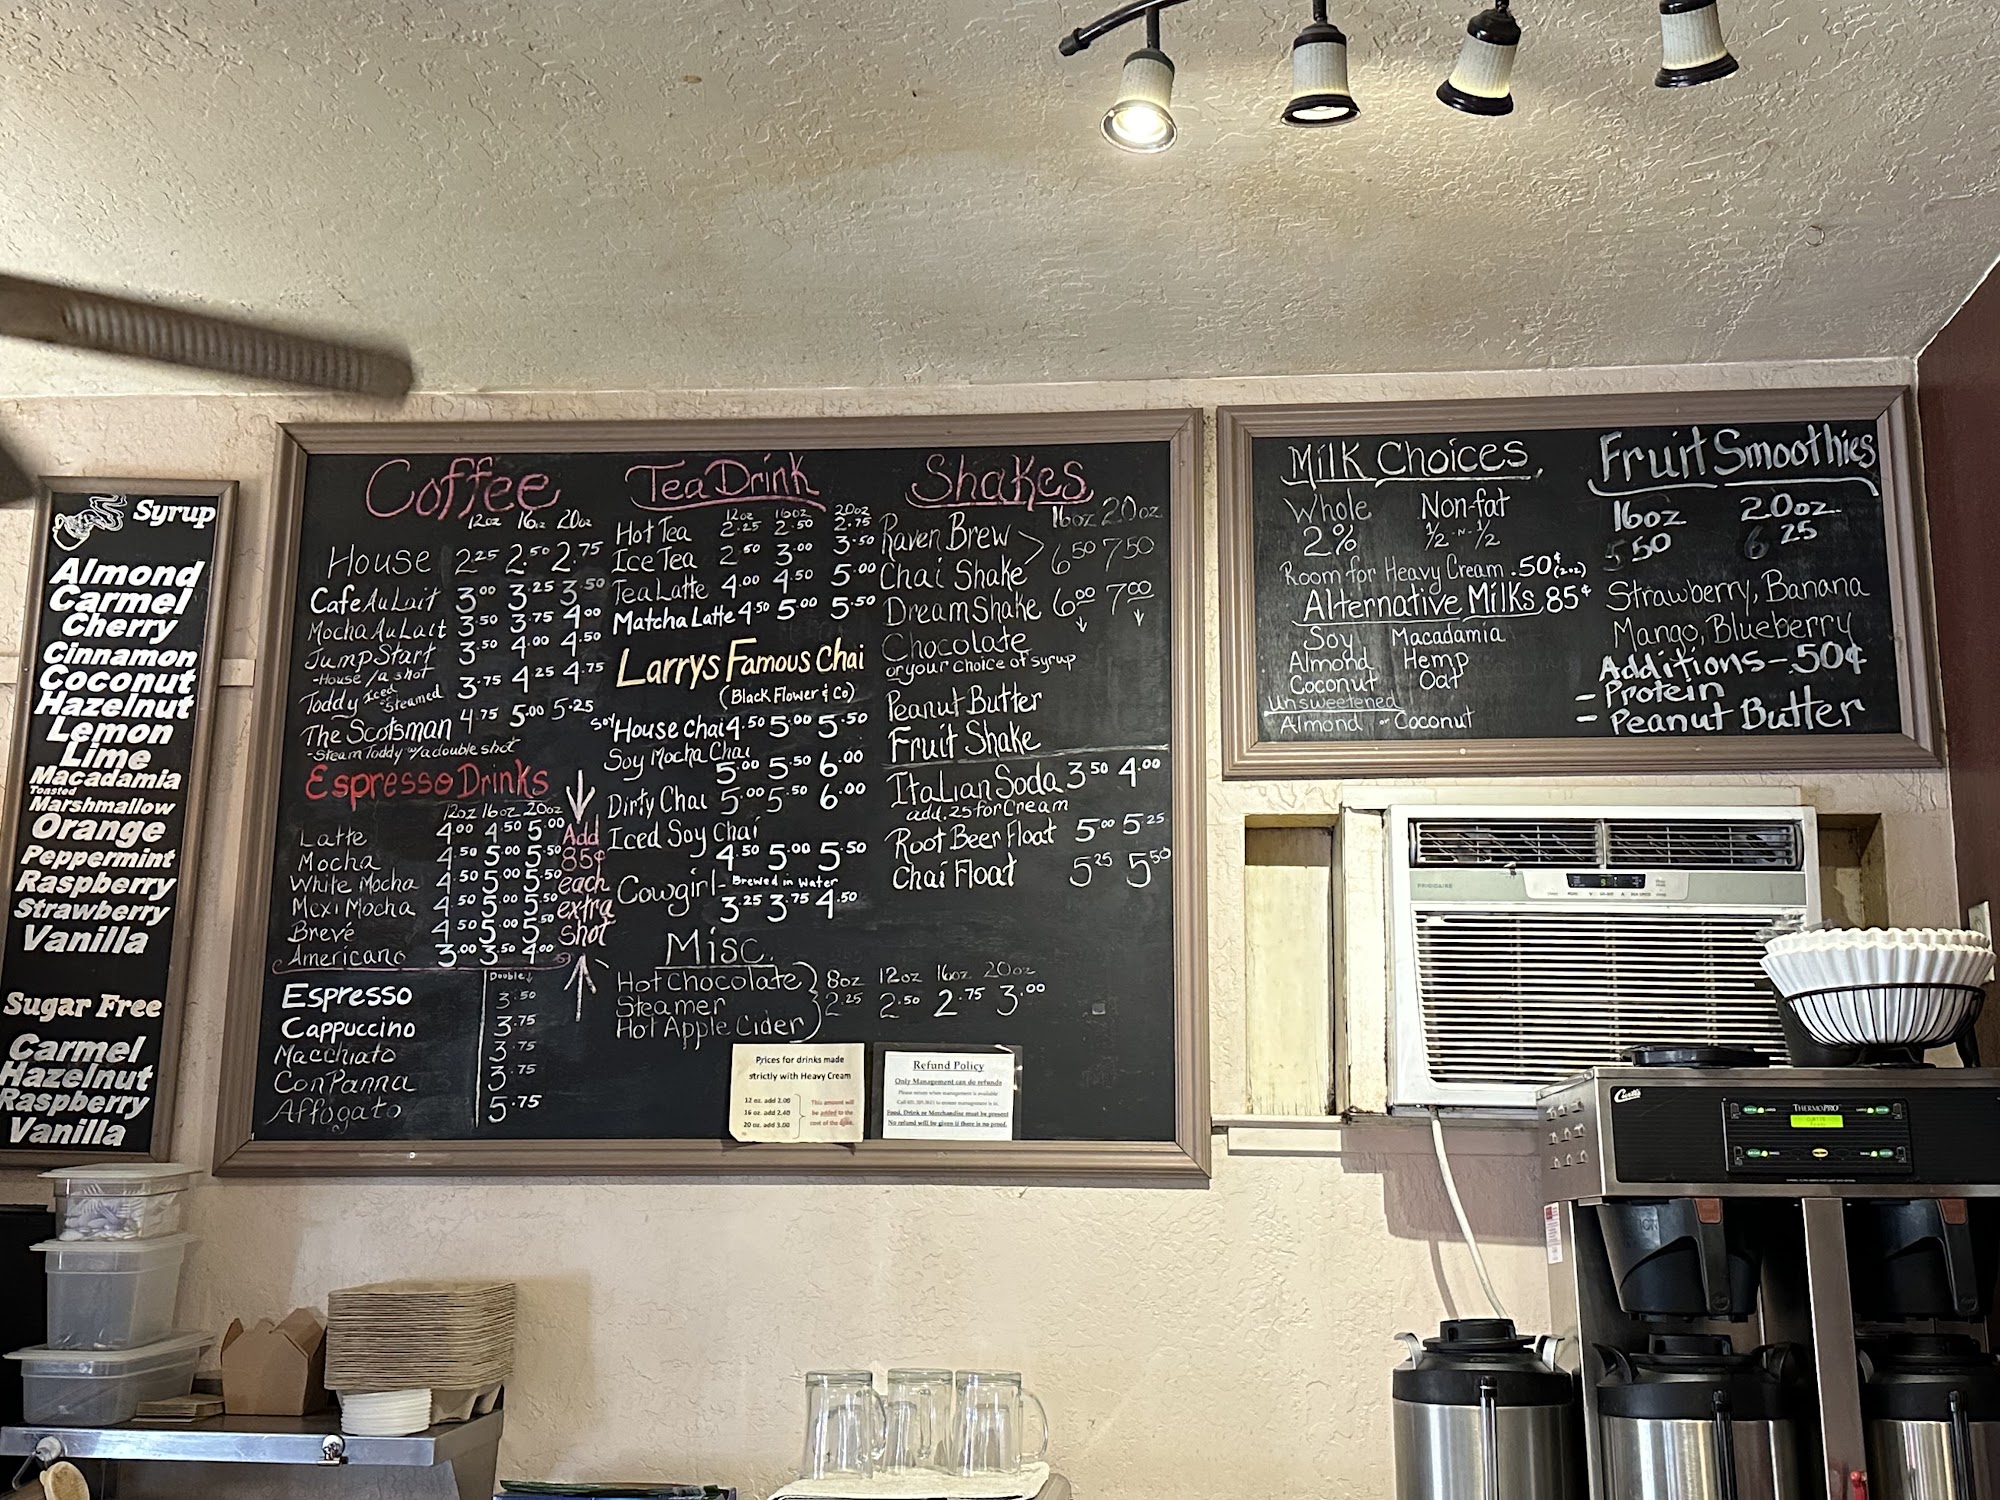 Syrup
Almond
Carmel
Cherry
Cinnamon
Coconut
Hazelnut
Lemon
Lime
Macadamia
Toasted
Marshmallow
Orange
Peppermint
Raspberry
Strawberry
Vanilla
Sugar Free
Carmel
Hazelnut
Raspberry
Vanilla
Coffee
12oz 16oz 20oz
House 2.25 2.50 2.75
Cafe Au Lait 3.00 3.25 3.50
Mocha Au Lait 3.50 3.75 4.00
Jump Start 3.50 4.00 4.50
-House /a shot
Toddy Iced -Steamed 3.75 4.25 4.75
The Scotsman 4.75 5.00 5.25
-Steam Toddy w/a double shot
Espresso Drinks
12oz 16oz 20oz
Latte 4.00 4.50 5.00
Mocha 4.50 5.00 5.50
White Mocha 4.50 5.00 5.50
Mexi Mocha 4.50 5.00 5.50
Brevé 4.50 5.00 5.50
Americano 3.00 3.50 4.00
Add
85¢
each
extra
shot
Double↓
Espresso 3.50
Cappuccino 3.75
Macchiato 3.75
Con Panna 3.75
Affogato 5.75
Tea Drink
12oz 16oz 20oz
Hot Tea 2.25 2.50 2.75
Ice Tea 2.50 3.00 3.50
Tea Latte 4.00 4.50 5.00
Matcha Latte 4.50 5.00 5.50
Larrys Famous Chai
(Black Flower & Co)
Soy House Chai 4.50 5.00 5.50
Soy Mocha Chai
5.00 5.50 6.00
Dirty Chai 5.00 5.50 6.00
Iced Soy Chai
4.50 5.00 5.50
Cowgirl - Brewed in Water
3.25 3.75 4.50
Misc.
8oz 12oz 16oz 20oz
Hot Chocolate
Steamer 2.25 2.50 2.75 3.00
Hot Apple Cider
Shakes
16oz 20oz
Raven Brew
6.50 7.50
Chai Shake
Dream Shake 6.00 7.00
Chocolate
or your choice of syrup
Peanut Butter
Fruit Shake
Italian Soda 3.50 4.00
add .25 for Cream
Root Beer Float 5.00 5.25
Chai Float 5.25 5.50
Prices for drinks made
strictly with Heavy Cream
12 oz. add 2.00
16 oz. add 2.40
20 oz. add 3.00
This amount will
be added to the
cost of the drink.
Refund Policy
Only Management can do refunds
Please return when management is available
Food, Drink or Merchandise must be present
No refund will be given if there is no proof.
Milk Choices
Whole Non-fat
2% 1/2 n 1/2
Room for Heavy Cream .50¢ (2oz)
Alternative Milks .85¢
Soy Macadamia
Almond Hemp
Coconut Oat
Unsweetened
Almond or Coconut
Fruit Smoothies
16oz 20oz
5.50 6.25
Strawberry, Banana
Mango, Blueberry
Additions - .50¢
- Protein
- Peanut Butter
FRIGIDAIRE
Curtis
THERMOPRO